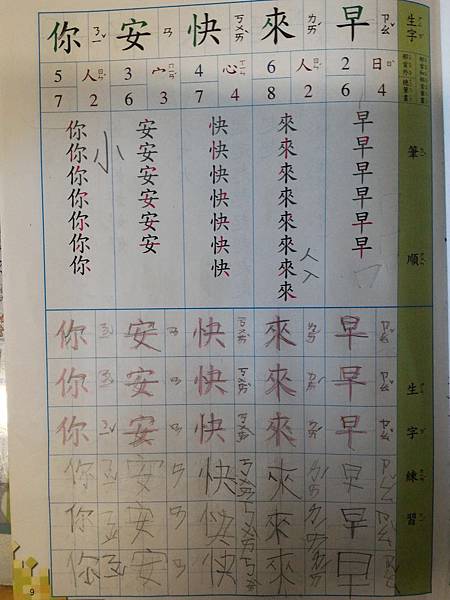 生字
早 ㄗㄠˇ
來 ㄌㄞˊ
快 ㄎㄨㄞˋ
安 ㄢ
你 ㄋㄧˇ
日 4
2 6
人 2
6 8
心 4
4 7
宀 3
3 6
人 2
5 7
筆順
早早早早早早
來來來來來來來來
人入
快快快快快快快
安安安安安安
小
你你你你你你你
生字練習
早早早早早早
來來來來來來
快快快快快快
安安安安安安
你你你你你你
9